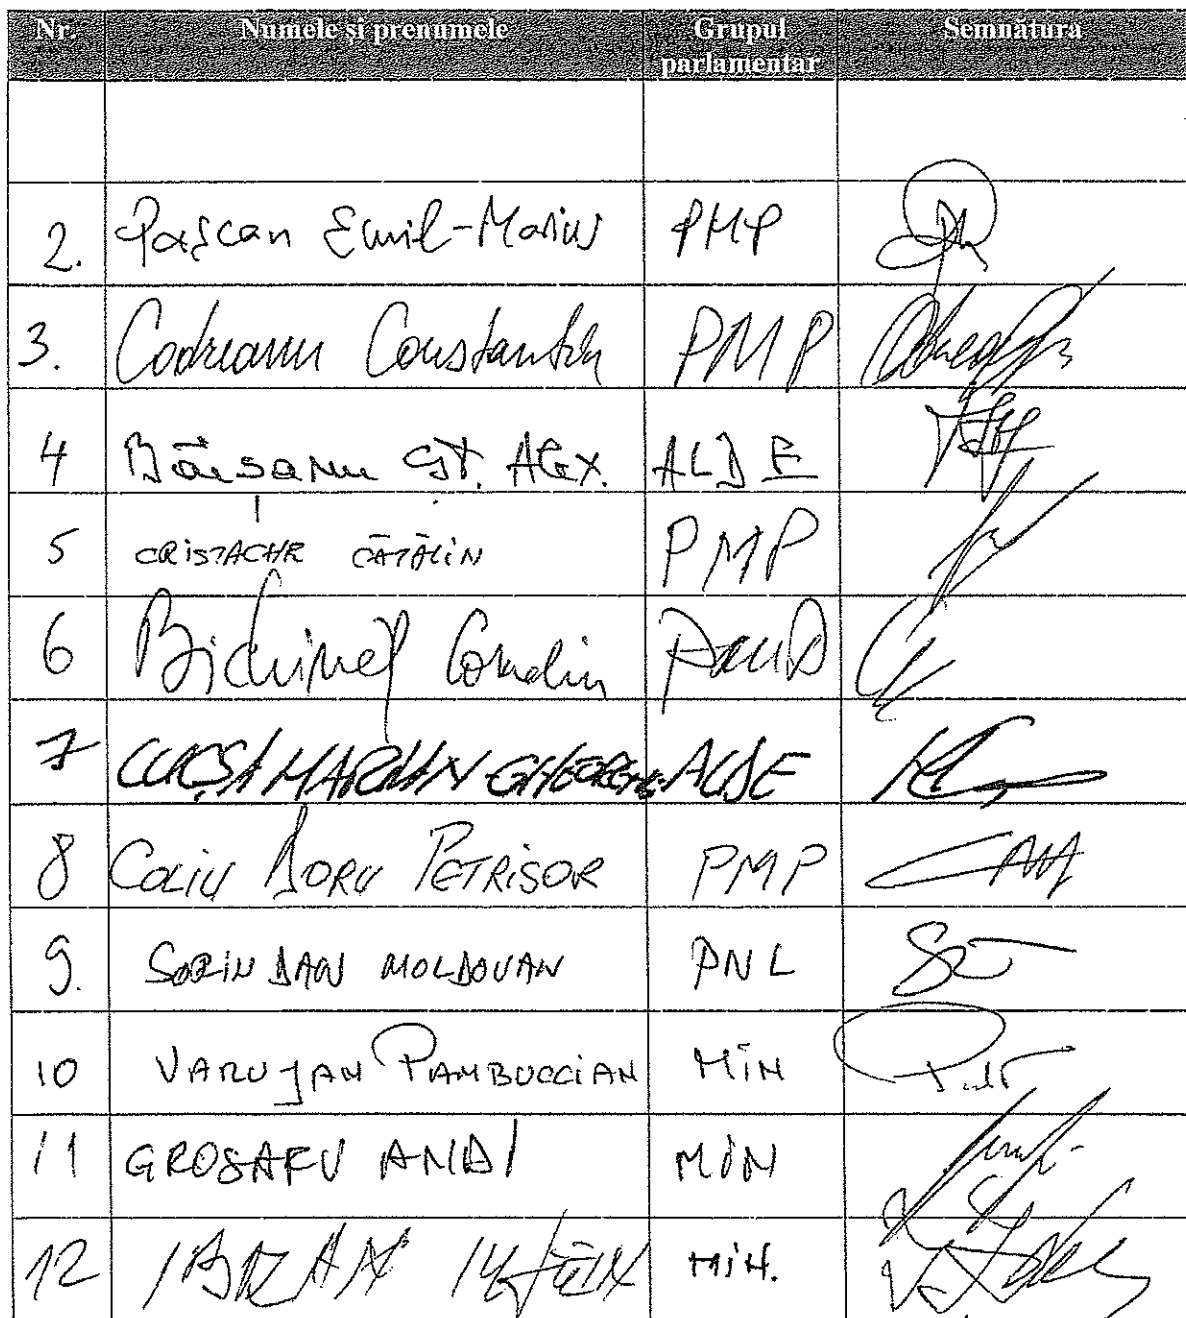 Nr. Numele și prenumele Grupul parlamentar Semnătura
2. Pașcan Emil-Marius PMP
3. Codreanu Constantin PMP
4 Băișanu Șt. Alex. ALDE
5 CRISTACHE CĂTĂLIN PMP
6 Bichineț Corneliu PMP
7 CUCȘA MARIAN-GHEORGHE ALDE
8 COLIU DORU PETRISOR PMP
9. SORIN DAN MOLDOVAN PNL
10 VARUJAN PAMBUCCIAN MIN
11 GROSARU ANDI MIN
12 IBRAM IUSEIN MIN.